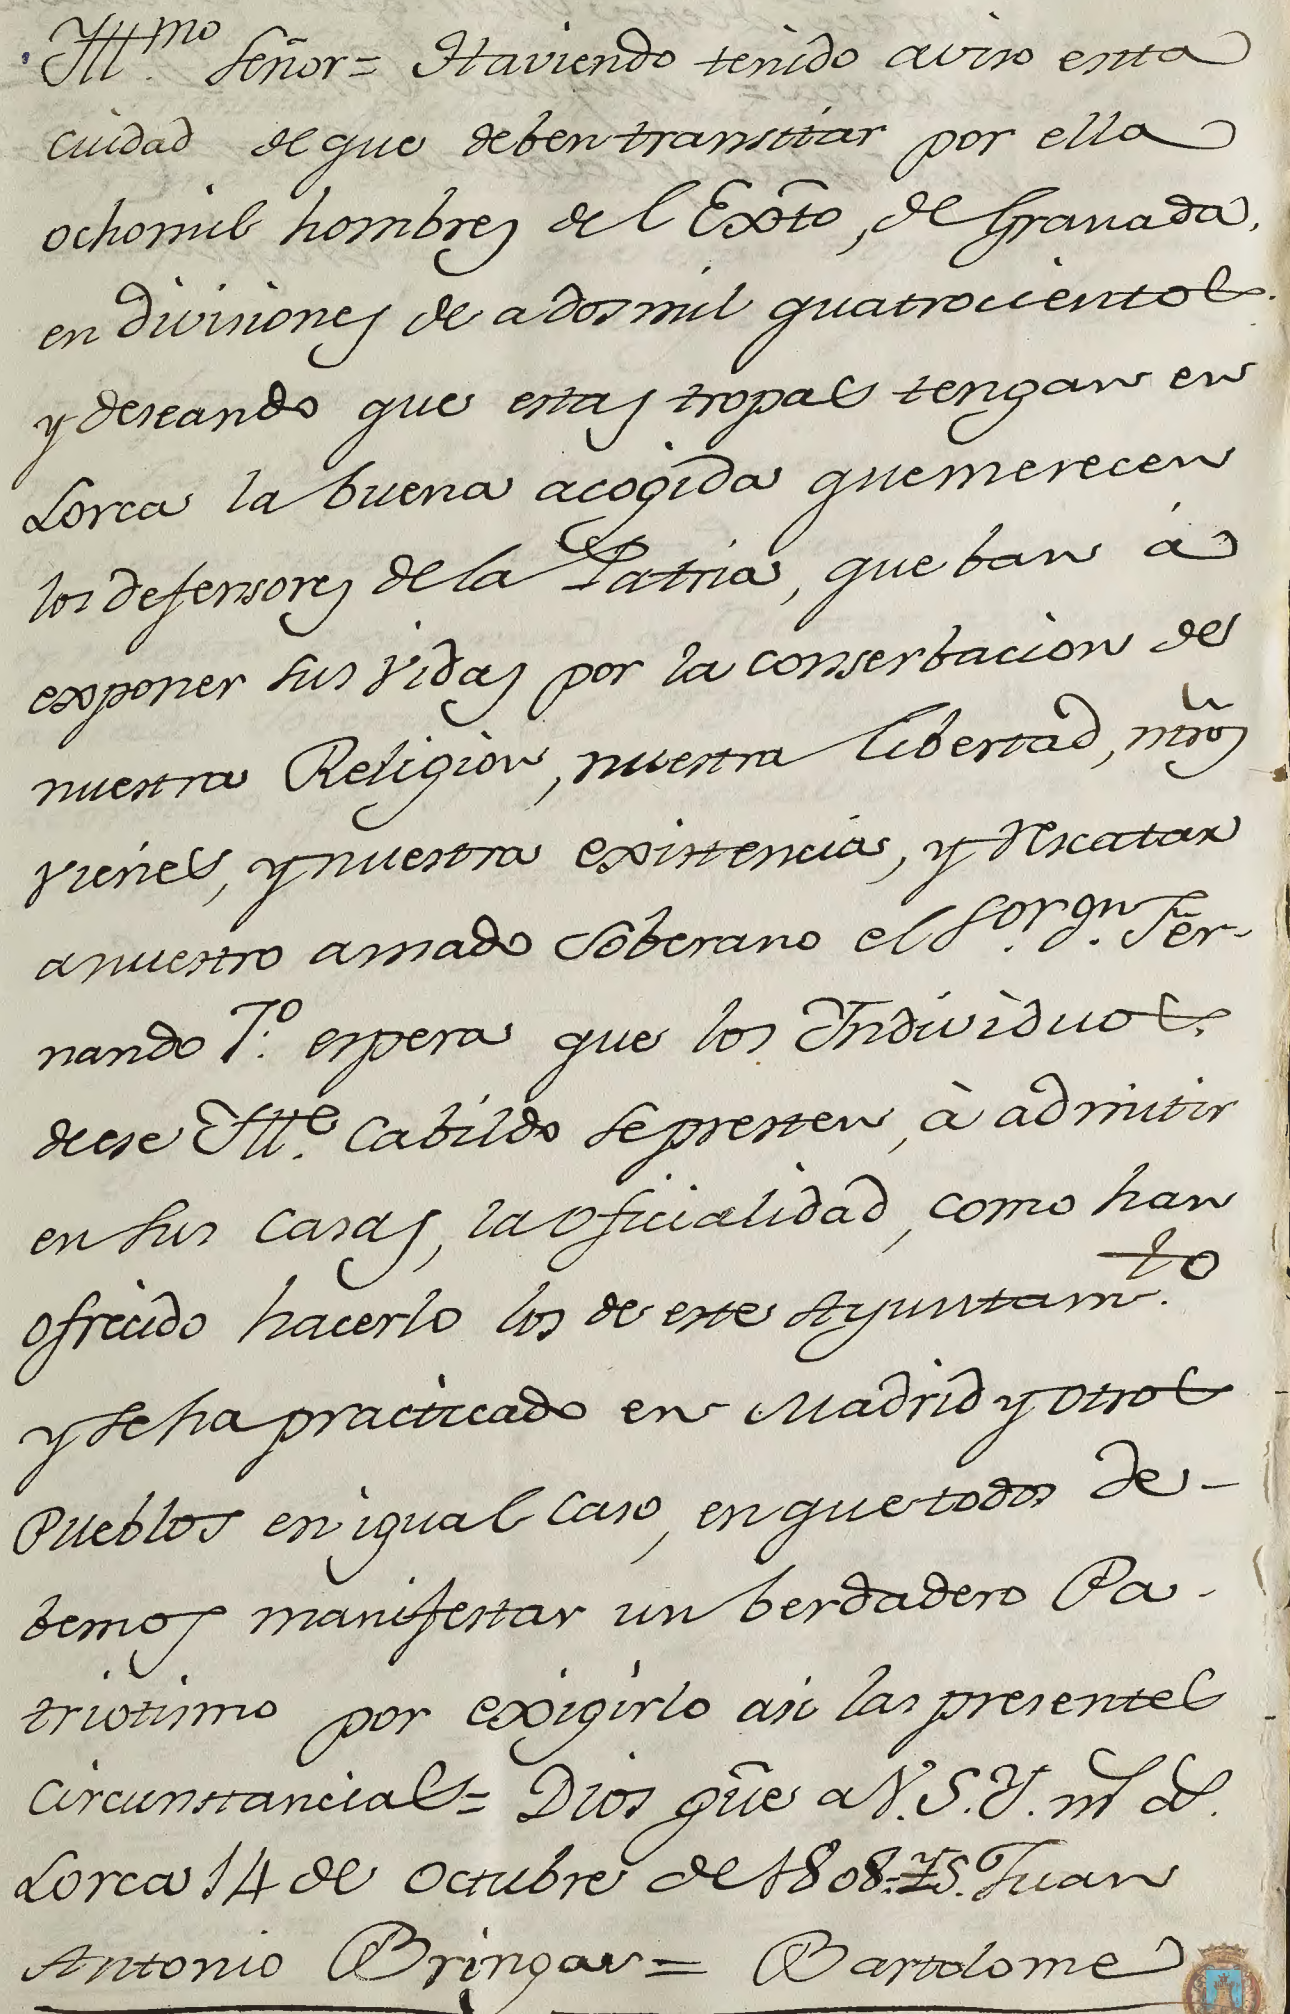 Ill.mo Señor= Haviendo tenido aviso esta
ciudad de que deben transitar por ella
ochomil hombres del Exto, de Granada,
en divisiones de a dos mil quatrocientos
y deseando que estas tropas tengan en
Lorca la buena acogida que merecen
los defensores de la Patria, que ban á
exponer sus vidas por la conserbacion de
nuestra Religion, nuestra libertad, ntros
vienes, y nuestra existencia, y rescatar
a nuestro amado Soberano el Sor. Dn. Fer-
nando 7.º espera que los Individuos
de ese Ille. Cabildo se presten, à admitir
en sus casas, la oficialidad, como han
ofrecido hacerlo los de este Ayuntam.to
y se ha practicado en Madrid y otros
Pueblos en igual caso, en que todos de-
bemos manifestar un berdadero Pa-
triotismo por exigirlo asi las presentes
circunstancias= Dios gũe a V. S. Y. ms as.
Lorca 14 de Octubre de 1808.= Juan
Antonio Bringas= Bartolome